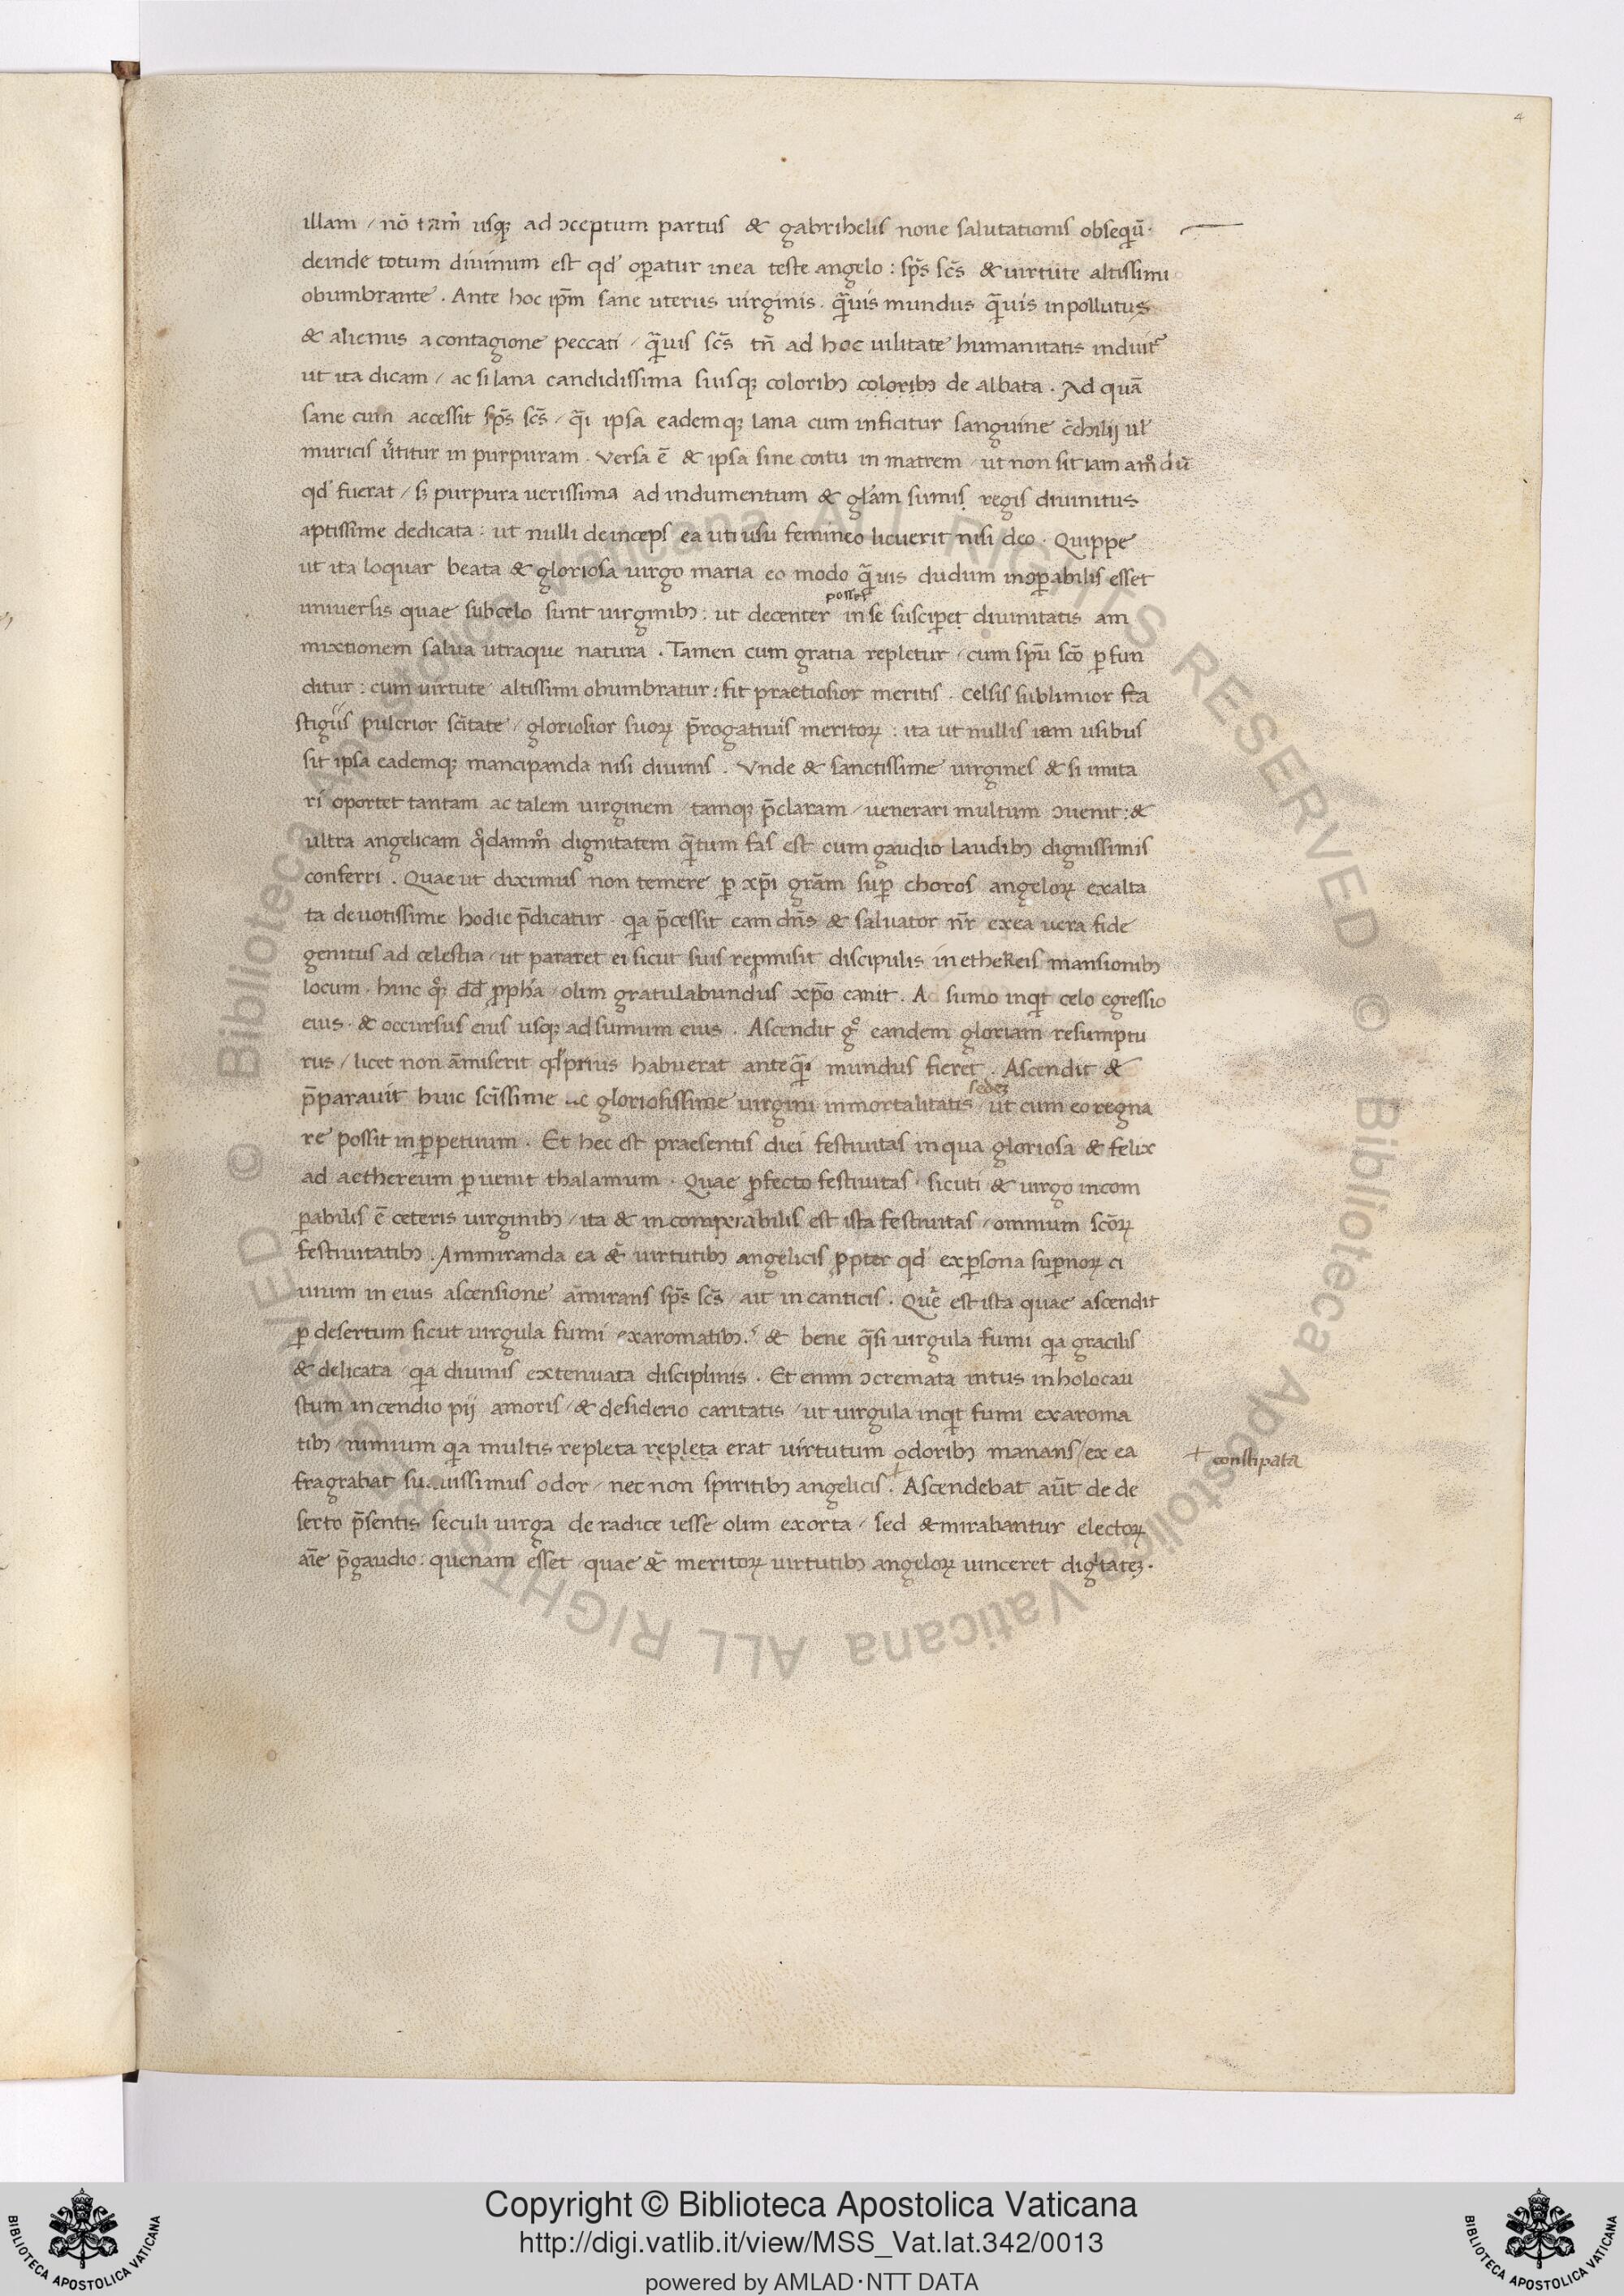 4
illam / nō tam̄ usqꝫ ad ɔceptum partus & gabrihelis noue salutationis obsequiū·
deinde totum diuinum est qd' oꝑatur inea teste angelo : sp̄s sc̄s & uirtute altissimi
obumbrante . Ante hoc ip̄m sane uterus uirginis . q̄uis mundus q̄uis inpollutus
& alienus a contagione peccati / q̄uis sc̄s tn̄ ad hoc uilitate humanitatis induit
ut ita dicam / ac si lana candidissima suisqꝫ coloribꝫ coloribꝫ de albata . Ad quā
sane cum accessit sp̄s sc̄s / q̄i ipsa eademqꝫ lana cum inficitur sanguine c̄chilij ul'
muricis u͛titur in purpuram . Versa ē & ipsa sine coitu in matrem / ut non sit iam
qd' fuerat / sꝫ purpura uerissima ad indumentum & gl'am sumis regis diuinitus
aptissime dedicata : ut nulli deinceps ea uti usu femineo licuerit nisi deo . Quippe
ut ita loquar beata & gloriosa uirgo maria eo modo q̄uis dudum inɔꝑabilis esset
uniuersis quae subcelo sunt uirginibꝫ : ut decenter posset inse susciꝑet diuinitatis am
mixtionem salua utraque natura . Tamen cum gratia repletur / cum sp̄u sc̄o ꝑfun
ditur : cum uirtute altissimi obumbratur : fit praetiosior meritis . Celsis sublimior fa
stigiis pulcrior sc̄itate / gloriosior suoꝝ p̄rogatiuis meritoꝝ : ita ut nullis iam usibus
sit ipsa eademqꝫ mancipanda nisi diuinis . Vnde & sanctissime uirgines & si imita
ri oportet tantam ac talem uirginem / tamqꝫ p̄claram / uenerari multum ɔuenit : &
ultra angelicam q̊dammo̊ dignitatem q̄tum fas est cum gaudio laudibꝫ dignissimis
conferri . Quae ut diximus non temere ꝑ xp̄i gr̄am suꝑ choros angeloꝝ exalta
ta deuotissime hodie p̄dicatur . qia p̄cessit eam dn̄s & saluator nr̄ exea uera fide
genitus ad celestia / ut pararet ei sicut suis repmisit discipulis in ethereis mansionibꝫ
locum . hinc qꝫ dd̄ ꝓpha / olim gratulabundus xp̄o canit . A sumo inqit celo egressio
eius . & occursus eius usqꝫ ad sumum eius . Ascendit g̊ eandem gloriam resumptu
rus / licet non āmiserit qd' prius habuerat anteq̄ mundus fieret . Ascendit &
p̄parauit huic sc̄issime ac gloriosissime uirgini inmortalitatis sedeꝫ / ut cum eo regna
re possit in ꝑpetuum . Et hec est praesentis diei festiuitas in qua gloriosa & felix
ad aethereum ꝑuenit thalamum . Quae ꝓfecto festiuitas . sicuti & uirgo incom
ꝑabilis ē ceteris uirginibꝫ / ita & incomparabilis est ista festiuitas / omnium sc̄oꝝ
festiuitatibꝫ . Ammiranda ea & uirtutibꝫ angelicis ꝓpter qd' ex ꝑsona suꝑnoꝝ ci
uium in eius ascensione āmirans sp̄s sc̄s / ait in canticis . Que est ista quae ascendit
ꝑ desertum sicut uirgula fumi exaromatibꝫ . & bene q̄si uirgula fumi qia gracilis
& delicata / qia diuinis extenuata disciplinis . Et enim ɔcremata intus in holocau
stum incendio pij amoris / & desiderio caritatis / ut uirgula inqit fumi exaroma
tibꝫ / nimium qia multis repleta repleta erat uirtutum odoribꝫ manans / ex ea
+ constipata
fragrabat suauissimus odor / nec non spiritibꝫ angelicis + . Ascendebat aūt de de
serto p̄sentis seculi uirga de radice iesse olim exorta / sed & mirabantur electoꝝ
aīe p̄gaudio : quenam esset / quae & meritoꝝ uirtutibꝫ angeloꝝ uinceret digitateꝫ .
© Biblioteca Apostolica Vaticana ALL RIGHTS RESERVED © Biblioteca Apostolica Vaticana ALL RIGHTS RESERVED
Copyright © Biblioteca Apostolica Vaticana
http://digi.vatlib.it/view/MSS_Vat.lat.342/0013
powered by AMLAD·NTT DATA
BIBLIOTECA APOSTOLICA VATICANA
BIBLIOTECA APOSTOLICA VATICANA